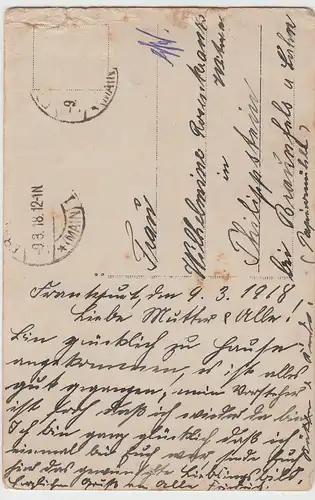 -9.3.18.12-1N
*(MAIN)
Frau
Wilhelmine Rosenkranz
Witwe
in
Philippstein
bei Braunfels a Lahn
(Papiermühle)
Frankfurt den 9.3.1918!
Liebe Mutter & Alle!
Bin glücklich zu Hause
angekommen, es ist alles
gut gegangen, mein Vorsteher
ist froh daß ich wieder da bin
Ich bin ganz glücklich daß ich
einmal bei Euch war sende Euch
hier das gewünschte Lieblingsbild.
Herzliche Grüße an Alle